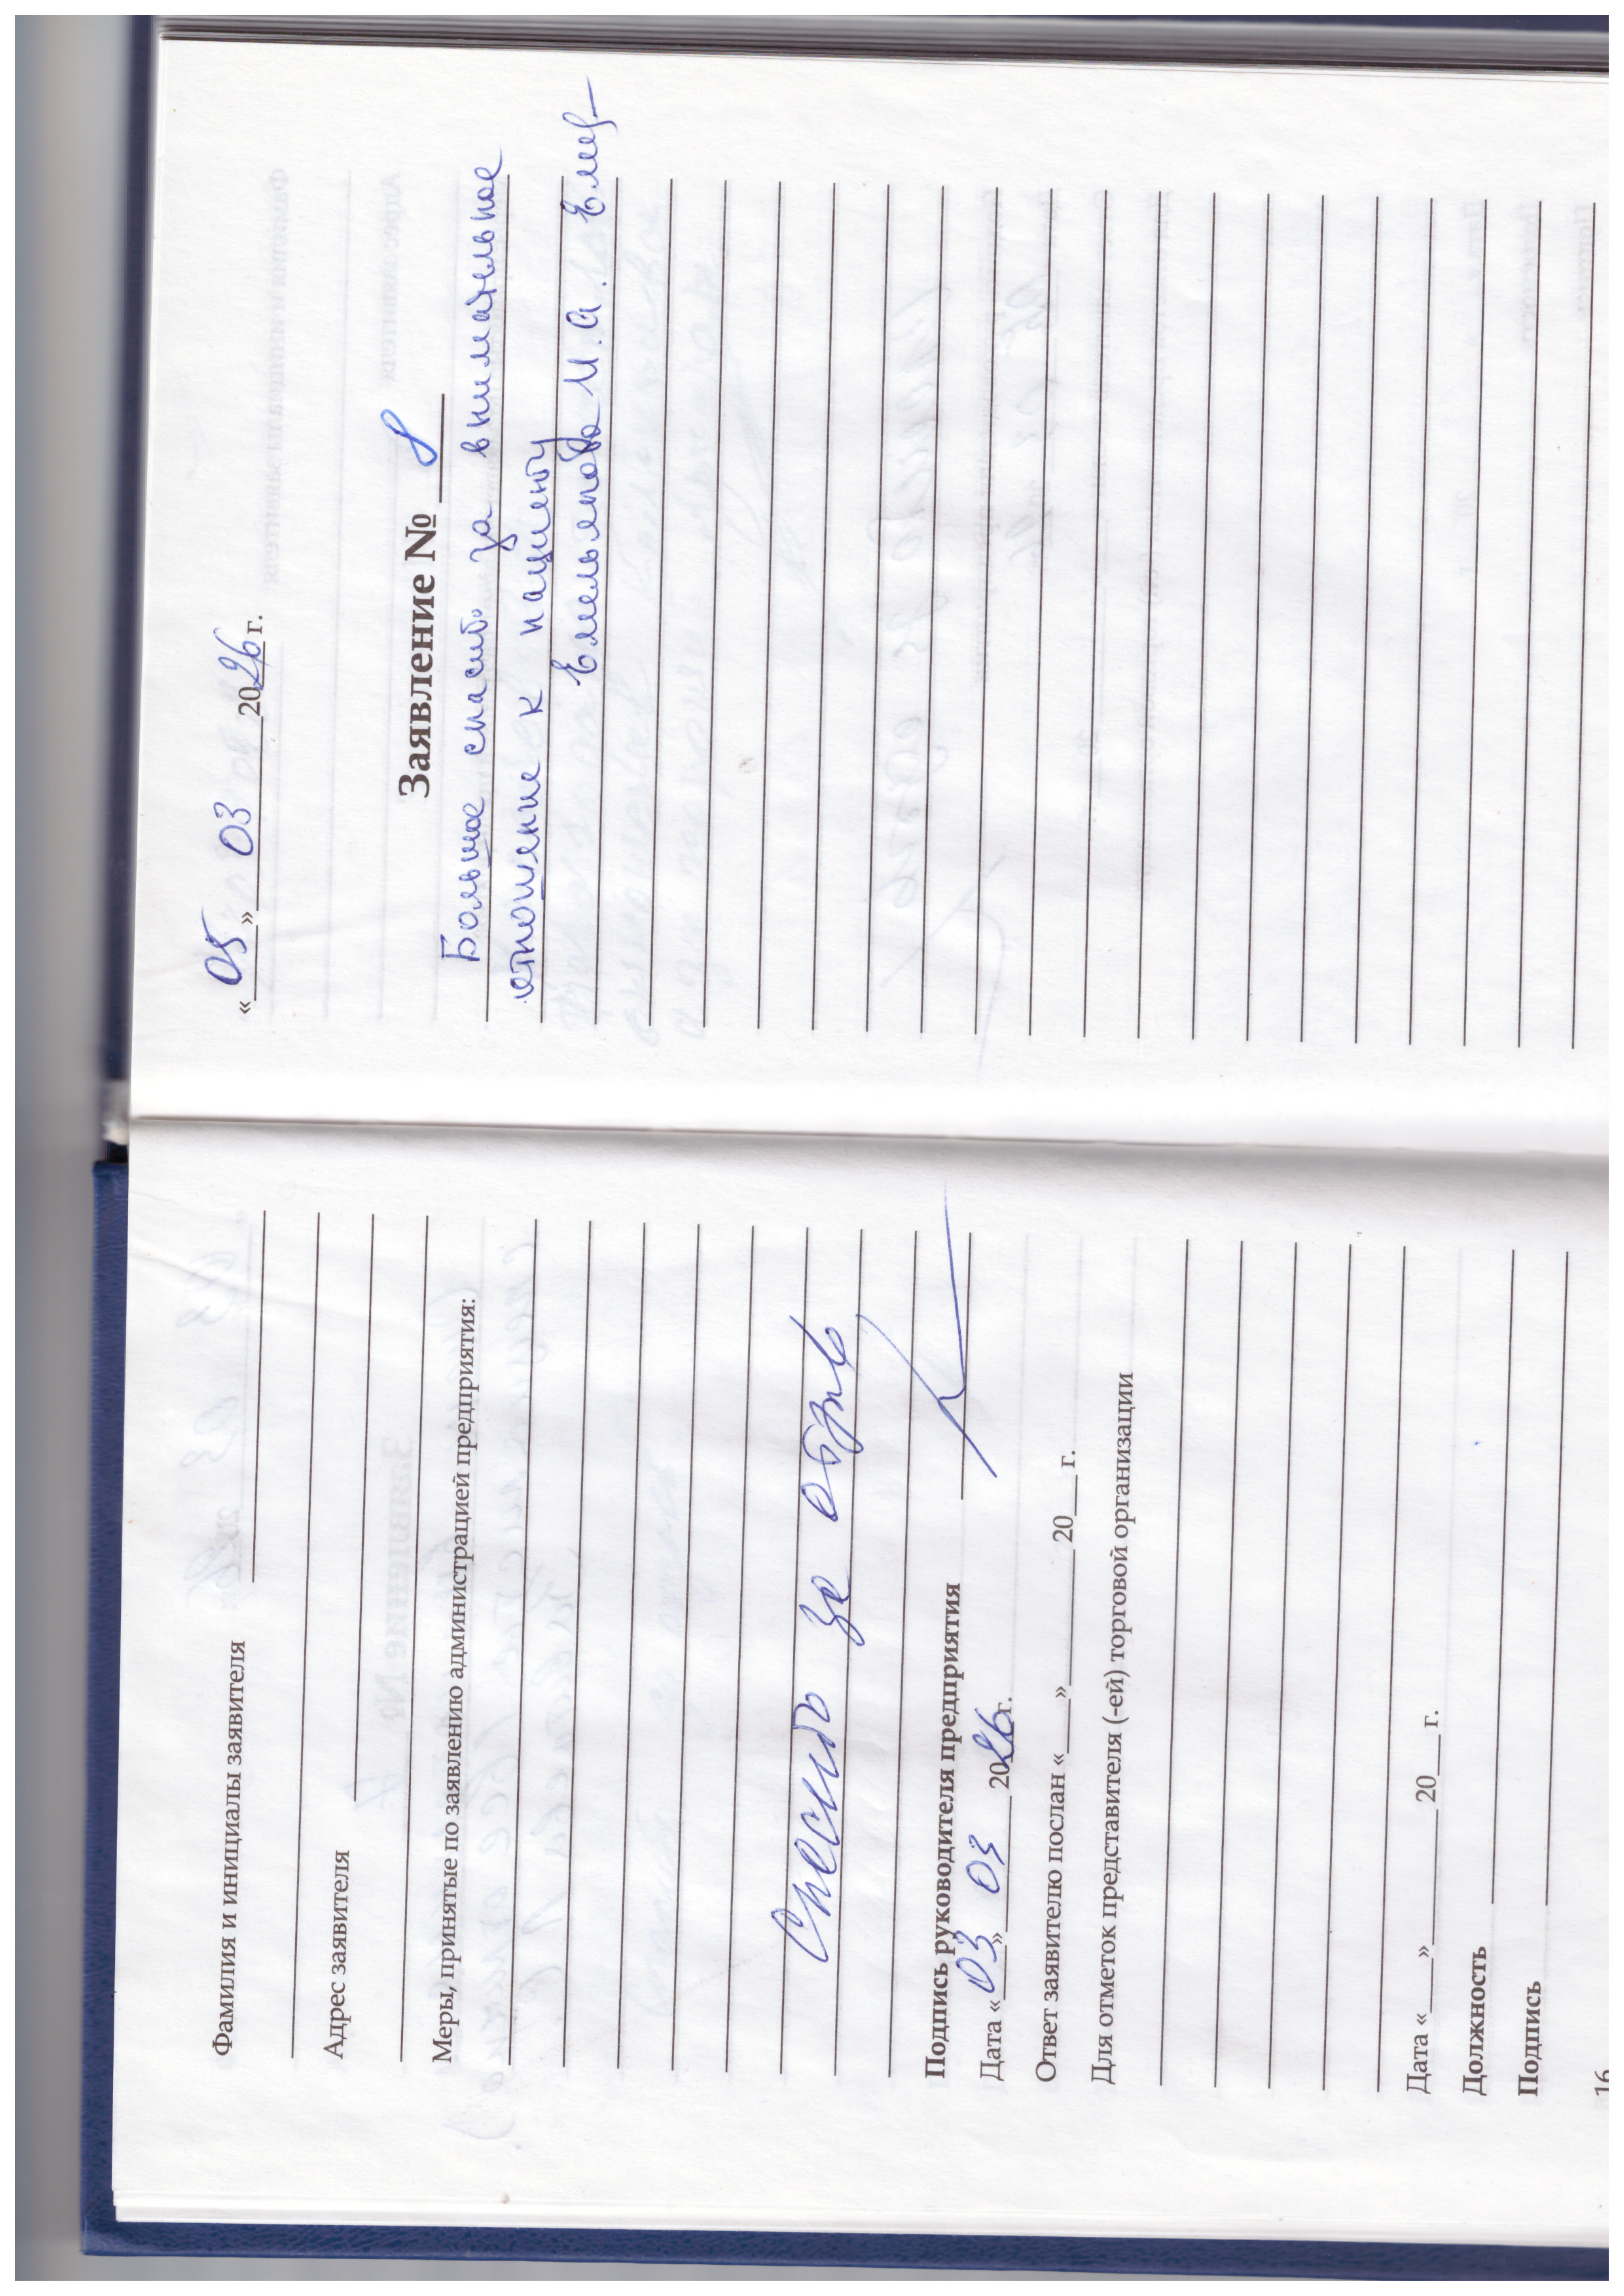 Фамилия и инициалы заявителя
Адрес заявителя
Меры, принятые по заявлению администрацией предприятия:
Спасибо за отзыв
Подпись руководителя предприятия
Дата «03» 03 2026 г.
Ответ заявителю послан «___»________20___г.
Для отметок представителя (-ей) торговой организации
Дата «___»________20___г.
Должность
Подпись
16
«05» 03 2026 г.
Заявление № 8
Большое спасибо за внимательное
отношение к пациенту
Емельянова М.А.